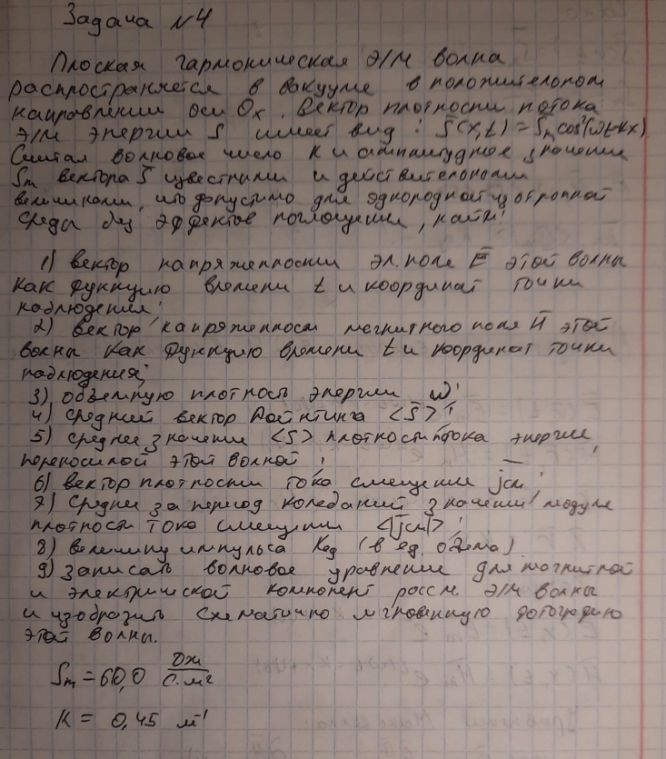 Задача №4
Плоская гармоническая э/м волна
распространяется в вакууме в положительном
направлении оси Ox. Вектор плотности потока
э/м энергии S имеет вид: S̄(x,t) = S̄m cos²(ωt-kx)
Считая волновое число k и амплитудное значение
Sm вектора S̄ известными и действительными
величинами, что допустимо для однородной изотропной
среды без эффектов поглощения, найти:
1) вектор напряженности эл. поля Ē этой волны
как функцию времени t и координат точки
наблюдения;
2) вектор напряженности магнитного поля H̄ этой
волны как функцию времени t и координат точки
наблюдения;
3) объемную плотность энергии ω;
4) средний вектор Пойнтинга <S̄>;
5) среднее значение <S> плотности потока энергии,
переносимой этой волной;
6) вектор плотности тока смещения j̄см;
7) среднее за период колебаний значение модуля
плотности тока смещения <|j̄см|>;
8) величину импульса Kед (в ед. объема).
9) записать волновое уравнение для магнитной
и электрической компонент рассм. э/м волны
и изобразить схематично мгновенную фотографию
этой волны.
Sm = 60,0 Дж/с·м²
K = 0,45 м⁻¹